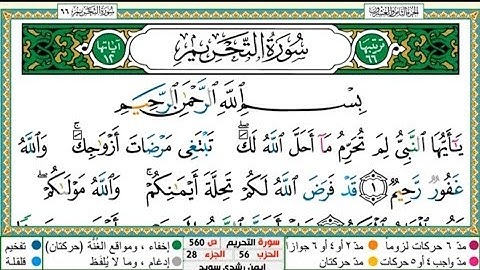 سُورَةُ التَّحْرِيمِ ٦٦
سُورَةُ التَّحْرِيمِ
ترتيبها ٦٦
آياتها ١٢
بِسْمِ اللَّهِ الرَّحْمَٰنِ الرَّحِيمِ
يَٰٓأَيُّهَا النَّبِيُّ لِمَ تُحَرِّمُ مَآ أَحَلَّ اللَّهُ لَكَ ۖ تَبْتَغِي مَرْضَاتَ أَزْوَٰجِكَ ۚ وَاللَّهُ
غَفُورٌ رَّحِيمٌ ١ قَدْ فَرَضَ اللَّهُ لَكُمْ تَحِلَّةَ أَيْمَٰنِكُمْ ۚ وَاللَّهُ مَوْلَىٰكُمْ ۖ
مدّ ٦ حركات لزوماً
مدّ ٢ أو ٤ أو ٦ جوازاً
مدّ واجب ٤ أو ٥ حركات
مدّ حركتان
سورة التحريم
ص 560
الحزب 56
الجزء 28
أيمن رشدي سويد
إخفاء، ومواقع الغُنَّة (حركتان)
إدغام، وما لا يُلفَظ
تفخيم
قلقلة